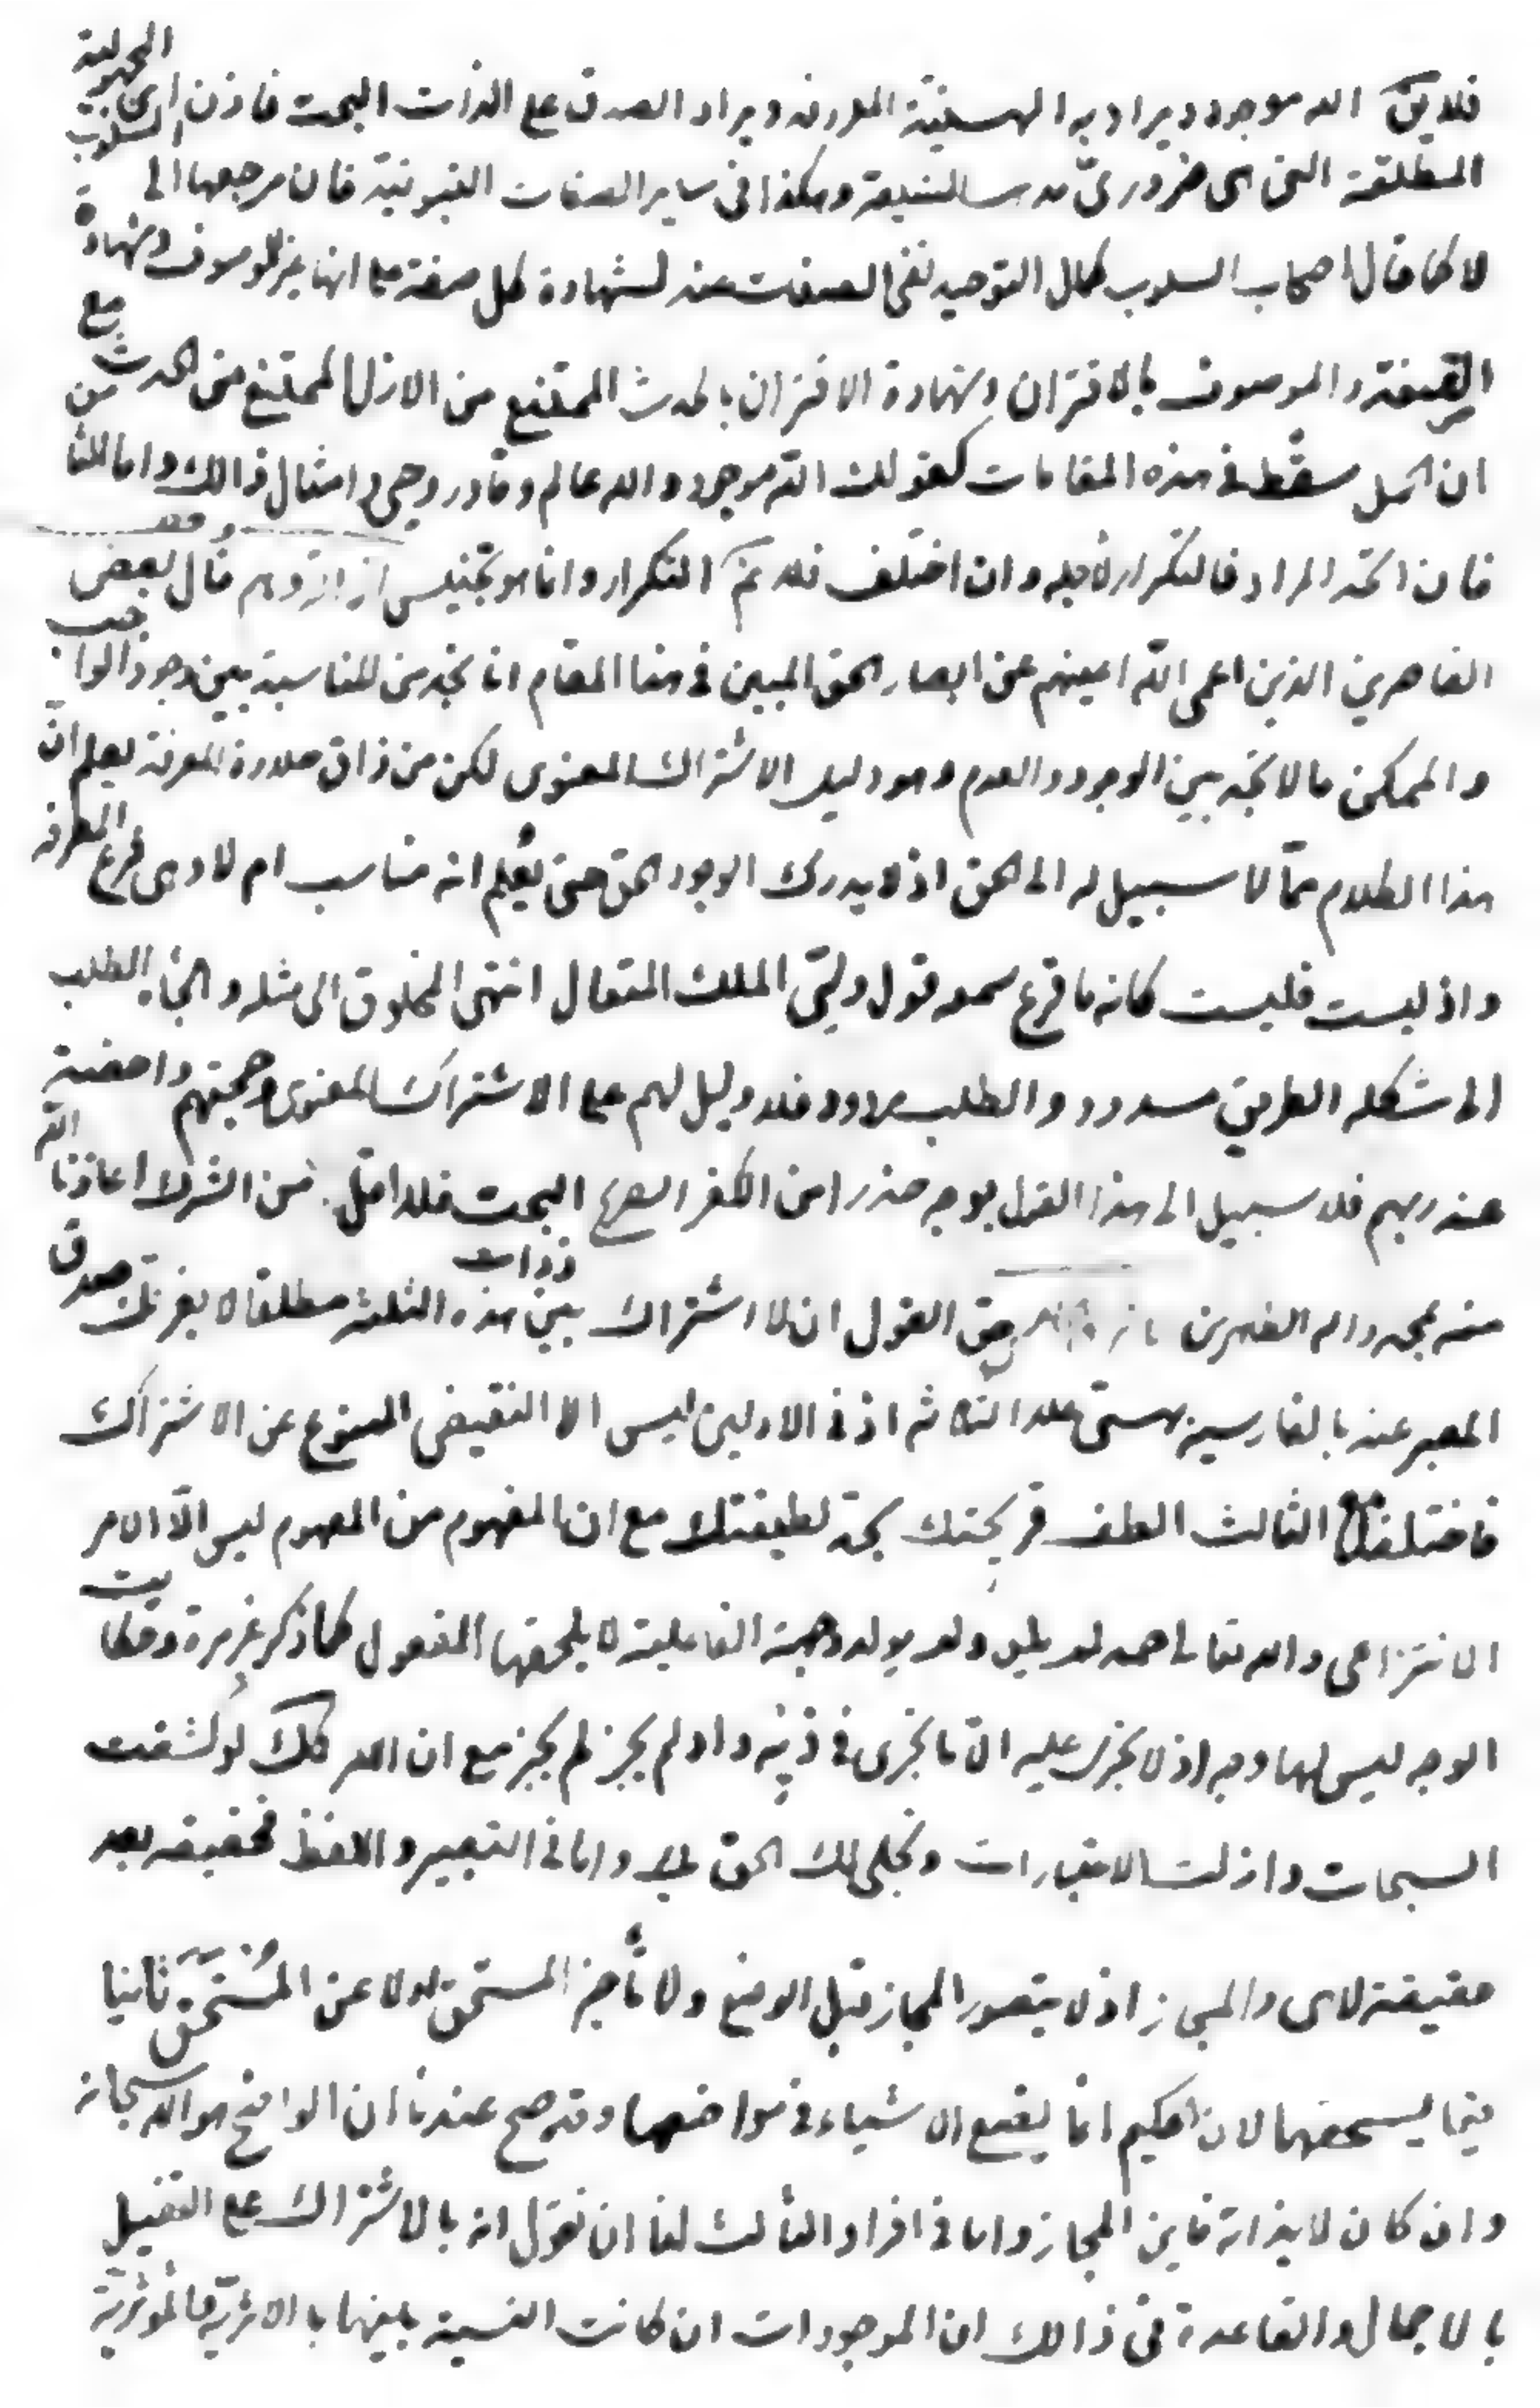 فلايق الله موجود ويراد به الهستية المعروفه ويراد الصدق على الذات البحت فاذن اى المجهولية
المطلقة التى هى ضرورى وهكذا فى ساير الصفات الثبوتية فان مرجعها الى السلوب
لا كما قال اصحاب السلوب كمال التوحيد نفى الصفات عنه لشهادة كل صفة على انها غير الموصوف وشهادة
الصفة والموصوف بالاقتران وشهادة الاقتران بالحدث الممتنع من الازل الممتنع من الحدث مع
ان الكل سقط فى هذه المقامات كقولك الله موجود والله عالم وقادر وحى وامثال ذالك واما الثا من
فان اتحد المراد فالتكرار لأجله وان اختلف فلا ثم التكرار وانما هو تجنيس قال بعض
القاصرين الذين اعمى الله اعينهم عن ابصار الحق المبين فى هذا المقام انا نجد من المناسبة بين وجود الواجب
والممكن ما لا نجد بين الوجود والعدم وهو دليل الاشتراك المعنوى لكن من ذاق حلاوة المعرفة يعلم ان
هذا الكلام مما لا سبيل له الى الحق اذ لا يدرك الوجود الحق حتى يعلم انه مناسب ام لا وهى فرع المعرفة
واذ ليست فليست كانه ما قرع سمعه قول ولى الملك المتعال انتهى المخلوق الى مثله والجأه الطلب
الى شكله الطريق مسدود والطلب مردود فلا دليل لهم على الاشتراك المعنوى وحجتهم داحضة
عند ربهم فلا سبيل الى هذا القول بوجه حذرا من الكفر الصراح البحت فلا اقل من الشرك اعاذنا الله
منه بمحمد واله الطاهرين حق القول ان لا اشتراك بين هذه الثلثة مطلقا لا يغرنك صدق
المعبر عنه بالفارسية بهستى على الثلاثه اذ فى الاولين ليس الا النقيض الممنوع عن الاشتراك
فاختلفا مع الثالث الطف قريحتك تجد لطيفتك مع ان المفهوم من المعهوم ليس الا الامر
الانتزاعى والله تعالى احد لم يلد ولم يولد وجهة الفاعلية لا يلحقها المفعول كما ذكر غير مرة وحكايت
الوجه ليس لها وجه اذ لا يجرى عليه الا ما يجرى فى ذيه واد لم يجز لم يجز مع ان الامر كك لو كشفت
السبحات وازلت الاعتبارات وتجلى لك الحق واما فى التعبير واللفظ فحقيقه بعد
حقيقة لاى والمجاز اذ لا يتصور المجاز قبل الوضع ولا تأخير المستحق اولا عن المستحق ثانيا
فيما يستحقها لان الحكيم انما يضع الاشياء فى مواضعها وقد صح عندنا ان الواضع هو الله سبحانه
وان كان لا بذاته فاين المجاز واما فى افراد الثالث لنا ان نقول انه بالاشتراك على التفصيل
بالاجمال والقاعدة فى ذالك ان الموجودات ان كانت النسبة بينها بالاثرية فالمؤثرية